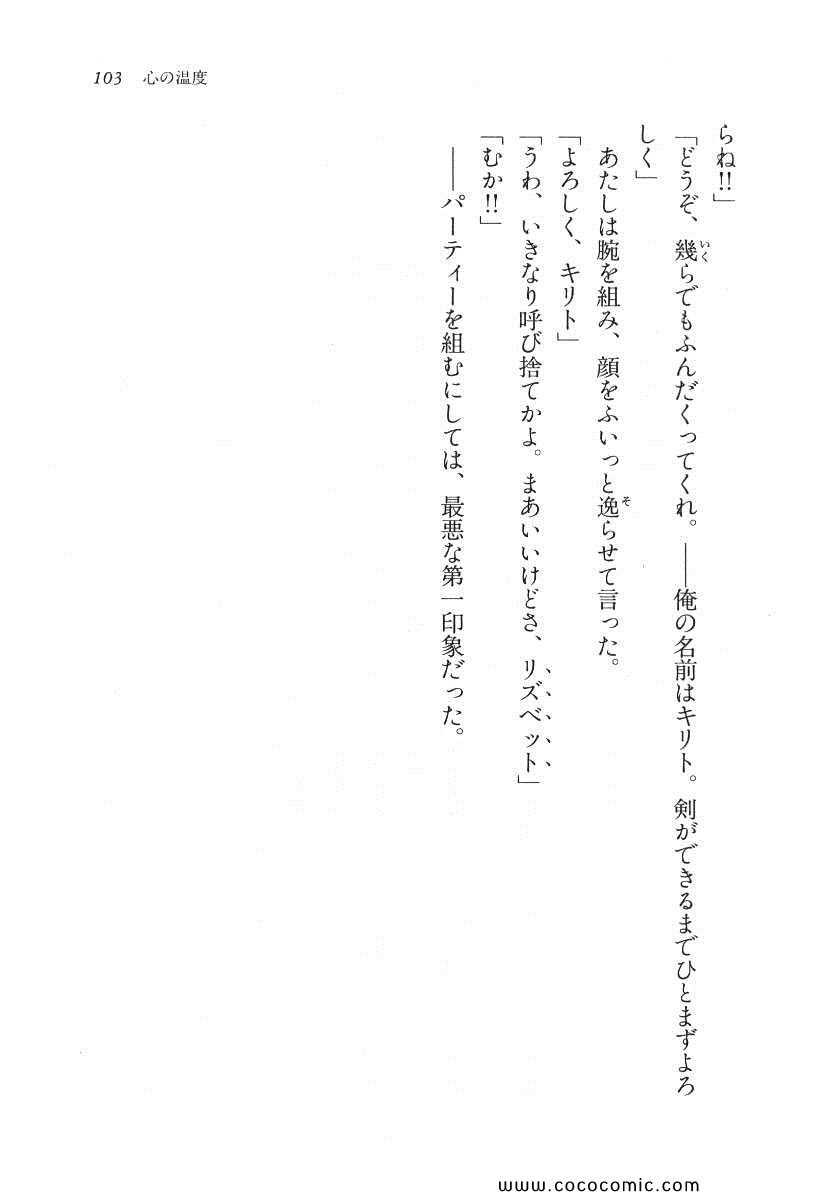 103 心の温度
らね!!」
「どうぞ、幾らでもふんだくってくれ。――俺の名前はキリト。剣ができるまでひとまずよろ
しく」
あたしは腕を組み、顔をふいっと逸らせて言った。
「よろしく、キリト」
「うわ、いきなり呼び捨てかよ。まあいいけどさ、リズベット」
「むか!!」
――パーティーを組むにしては、最悪な第一印象だった。
www.cococomic.com